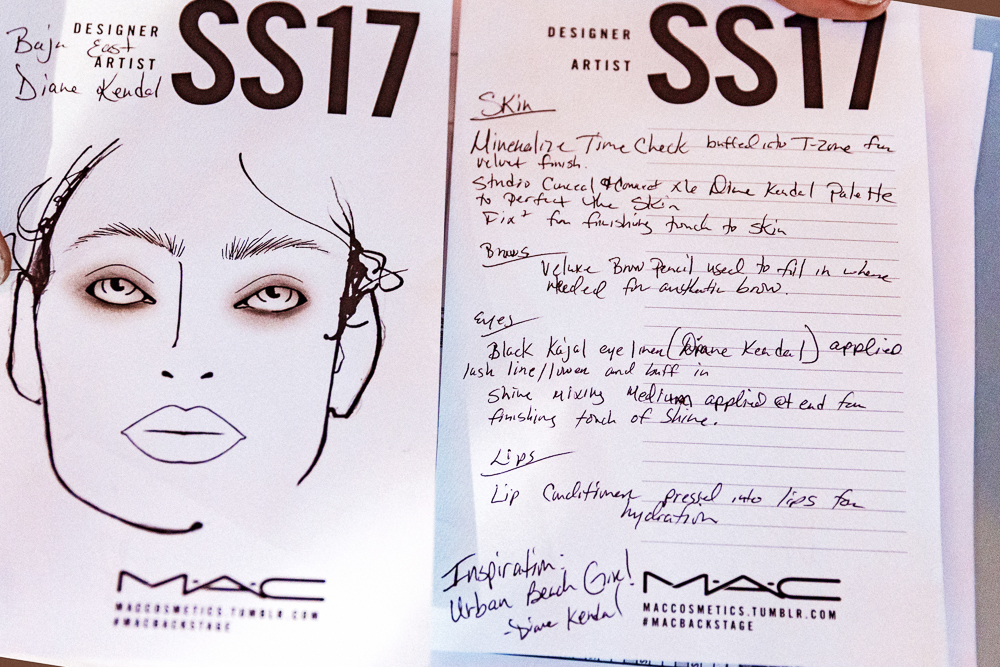 Baja East
DESIGNER
ARTIST
Diane Kendal
SS17
MAC
MACCOSMETICS.TUMBLR.COM
#MACBACKSTAGE
DESIGNER
ARTIST
SS17
Skin
Mineralize Time Check buffed into T-zone for
velvet finish.
Studio Conceal & Correct xle Diane Kendal Palette
to perfect the skin
Fix+ for finishing touch to skin
Brows
Veluxe Brow Pencil used to fill in where
needed for authentic brow.
Eyes
Black Kajal eye liner (Diane Kendal) applied
lash line/lower and buff in
Shine Mixing Medium applied @ end for
finishing touch of shine.
Lips
Lip Conditioner pressed into lips for
hydration
Inspiration:
Urban Beach Girl!
-Diane Kendal
MAC
MACCOSMETICS.TUMBLR.COM
#MACBACKSTAGE